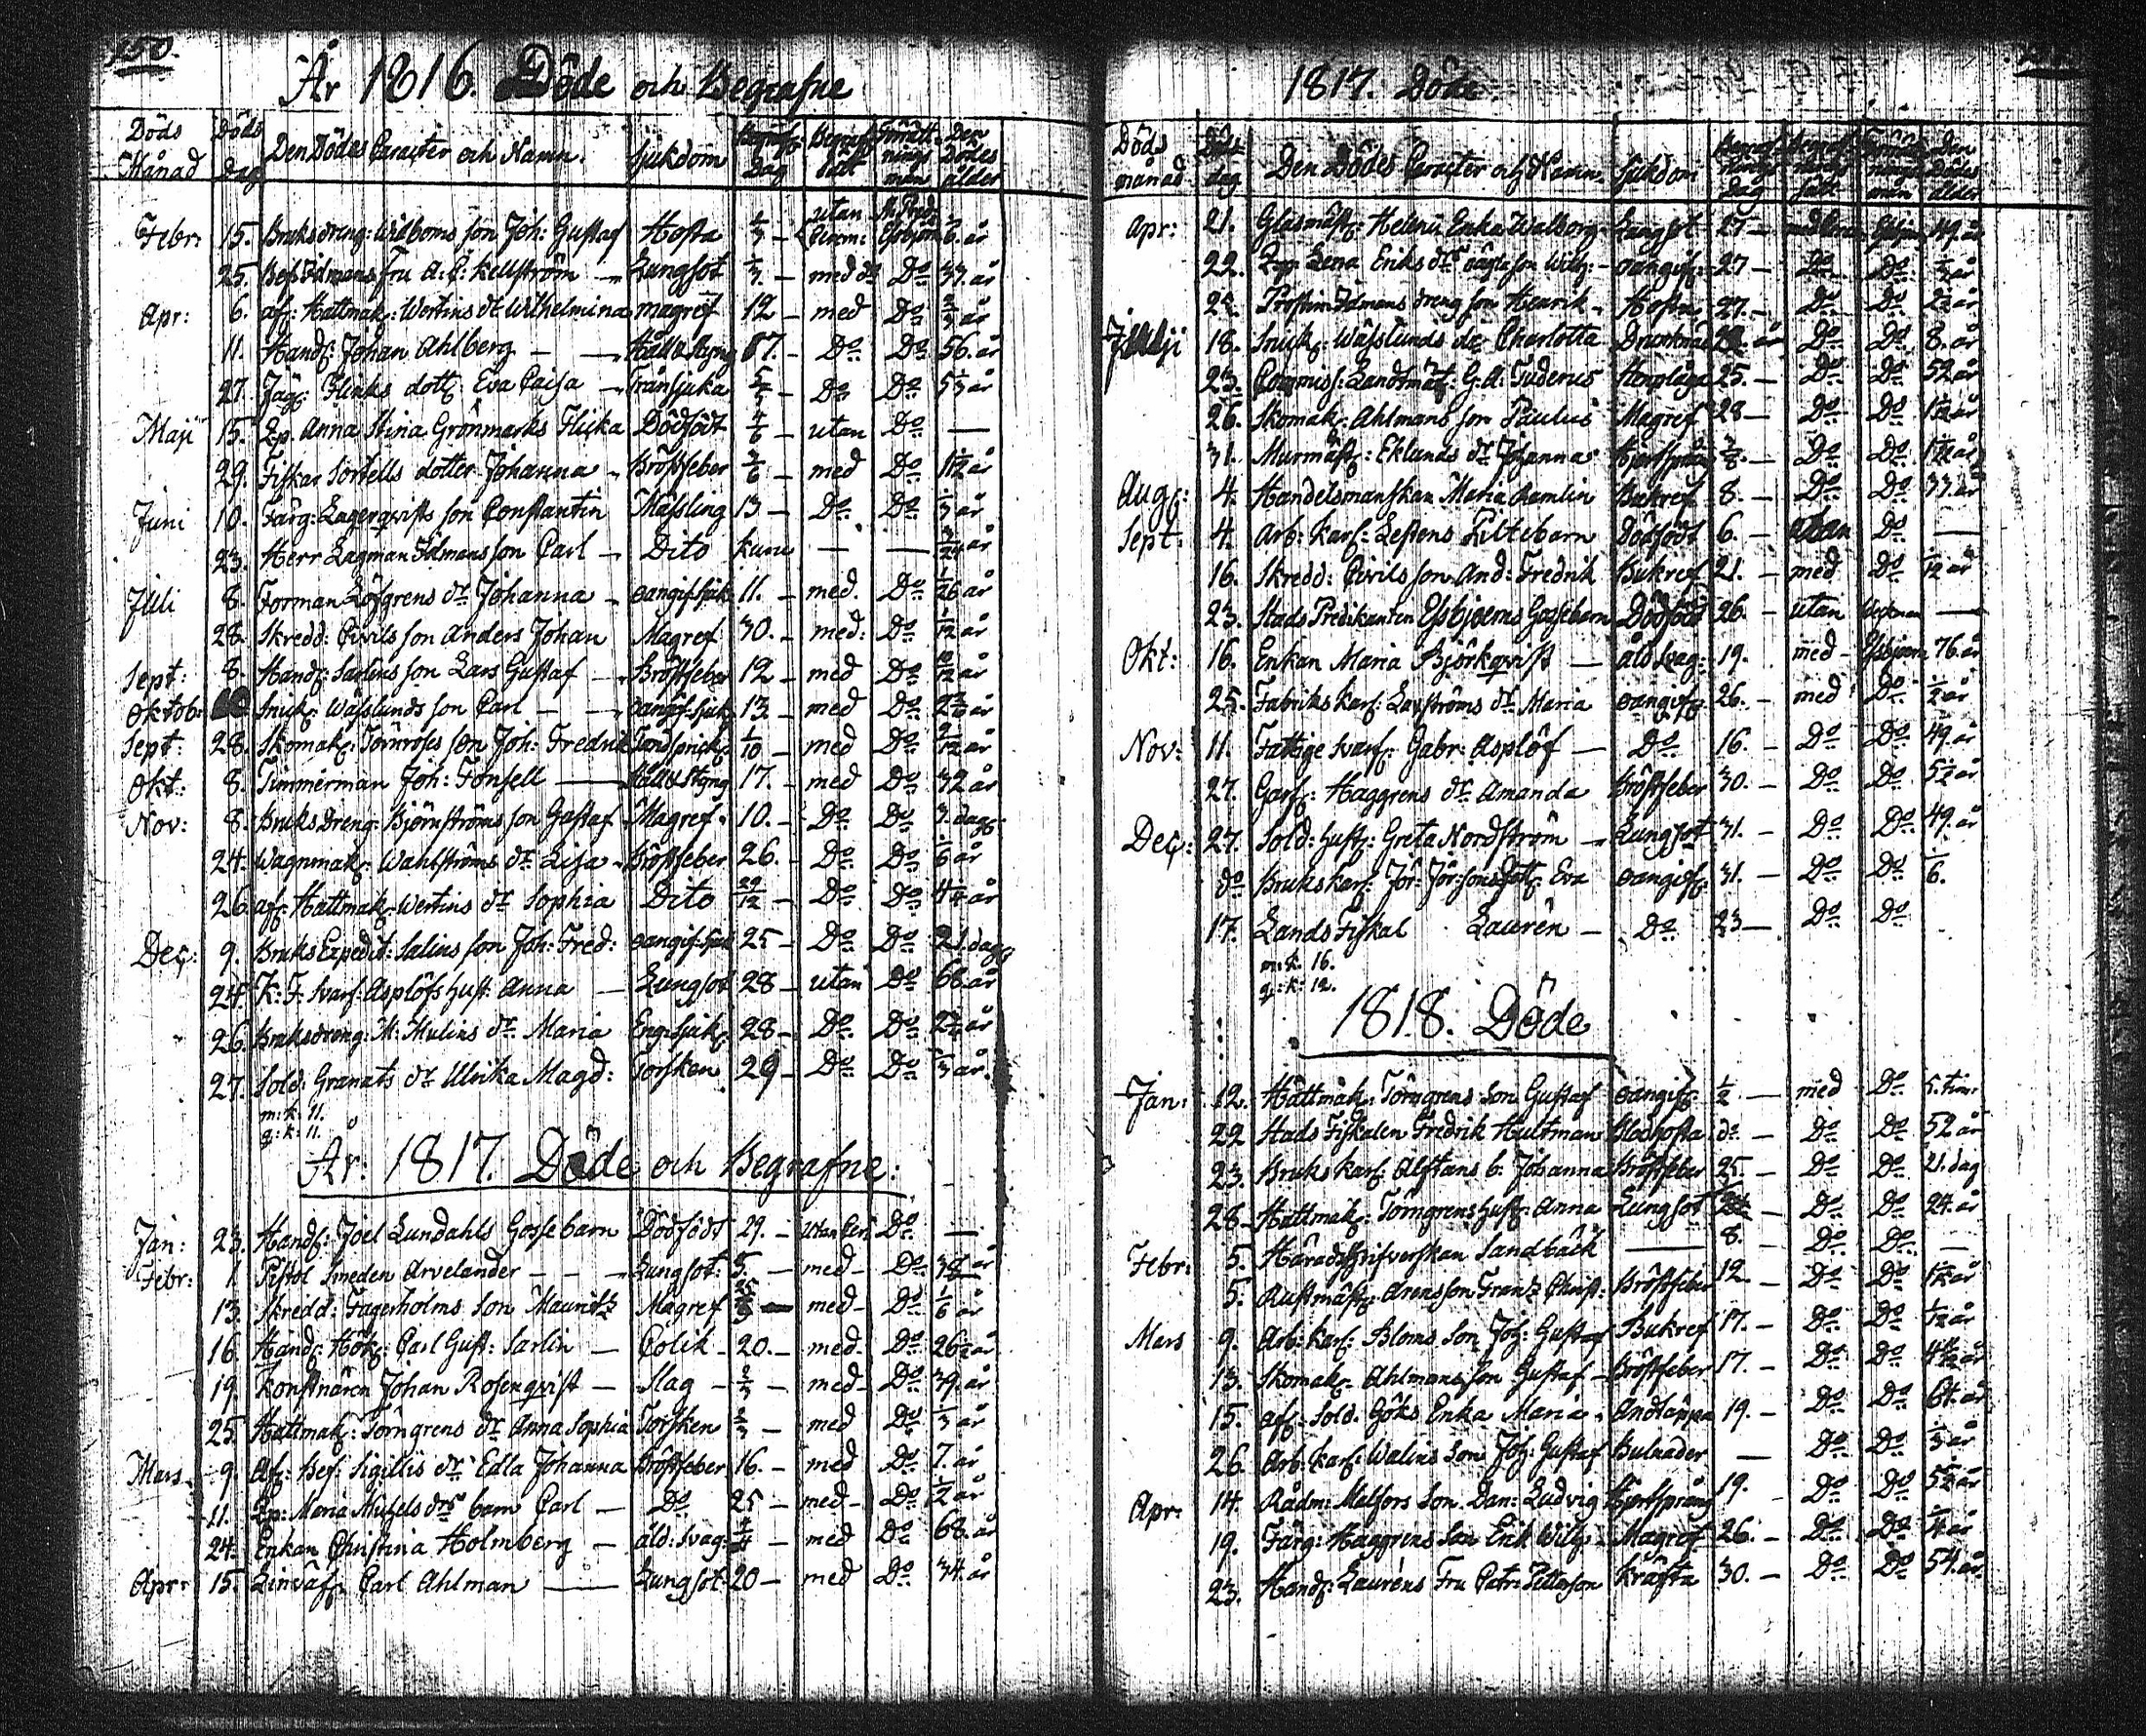 150.
År 1816. Döde och Begrafne
Döds Månad Döds Dag Den Dödes Caracter och Namn. Sjukdom Begrafn: Dag Begrafn: Sätt Förrättnings man Den Dödes ålder
Febr: 15. Bruksdreng: Wilboms son Joh: Gustaf Hosta 1/3 utan Cerem: St: Pred: Essbjörn år
25. Fru A: C: Kellström Lungsot /3. med do Do 33. år
Apr: 6. af: Hattmak: Wertins dr Wilhelmina magref 12 med Do år
11. Handl: Johan Ahlberg Håll & Styng 17. Do Do 56. år
27. Jäg: Flinks dott: Eva Caisa Tränsjuka Do Do 5 1/3 år
Maji 15. Lp. Anna Stina Grönmarks Flicka Dödfödt 4/6 utan Do —
29. Fiskar Sortells dotter Johanna Bröstfeber 3/6 med Do år
Juni 10. Färg: Lagerqvists son Constantin Mässling 13 Do Do år
23. Herr Lagman Idmans son Carl Dito — — år
Juli 8. Forman Löfgrens dr Johanna oangif: sjuk 11. med. Do 1/26 år
28. Skredd: Civils son Anders Johan Magref 30. med: Do 1/12 år
Sept: 8. Handl: Sarlins son Lars Gustaf Bröstfeber 12 med Do 10/12 år
Oktob: Snick: Wässlunds son Carl oangif: sjuk 13. med Do år
Sept: 28. Skomak: Törnroses son Joh: Fredrik Tandsprick: 1/10 med Do /12 år
Okt: 8. Timmerman Joh: Fonsell Håll & Styng 17. med Do 32 år
Nov: 8. Bruks Dreng: Björnströms son Gustaf Magref. 10. Do Do 3. dag:
24. Wagnmak: Wahlströms dr Lisa Bröstfeber 26. Do Do 1/6 år
26. af: Hattmak: Wertins dr Sophia Dito 29/12 Do Do år
Dec: 9. Bruks Expedit: Salins son Joh: Fred: oangif: sjuk 25 Do Do 21. dag:
24. K: F. Svarf: Asplöfs hust: Anna Lungsot 28 utan Do 68. år
26. Bruksdreng: M: Hulins dr Maria Eng: sjuk: 28 Do Do år
27. Sold: Granats dr Ulrika Magd: Torsken 29 Do Do 1/3 år.
m: k: 11.
q: k: 11.
År: 1817. Döde och Begrafne:
Jan: 23. Handl: Joel Lundahls Gossebarn Dödfödt 29. utan Cer: Do —
Febr: 1 Pistol Smeden Arvelander Lungsot: 5. med Do 38 år
13. Skredd: Fagerholms son Mauritz Magref med Do 1/6 år
16. Handl: Hök: Carl Gust: Sarlin Colik 20. med Do 26 år
19. Konstnären Johan Rosenqvist Slag 2/3 med Do 39. år
25. Hattmak: Törngrens dr Anna Sophia Torsken 2/3 med Do 1/3 år
Mars 9. Af: Bef: Sigillis dr Edla Johanna Bröstfeber 16. med Do 7. år
11. Lp: Maria Michelsdrs barn Carl Do 25 med Do 1/2 år
24. Enkan Christina Holmberg åld: svag: /4 med Do 68. år
Apr: 15. Linväf: Carl Ahlman Lungsot 20 med Do 34. år
1817. Döde.
Döds månad Döds dag Den Dödes Caracter och Namn. Sjukdom Begrafnings dag Begrafnings sätt Förrättnings man Den Dödes ålder
Apr: 21. Glasmäst: Helenii Enka Walborg Lungsot 27 med Cerem: Essbjörn 49. år
22. Lp: Lena Eriksdrs son Wilh: oangif: 27 Do Do 1/3 år
2 Prostinn Idmans dreng son Henrik Hosta 27. Do Do år
Julji 18. Snick: Wässlunds dr Charlotta år Do Do 8. år
23. Commiss: Landtmät: G: A: Tuderus Stenplåga 25. Do Do 52 år
26. Skomak: Ahlmans son Paulus Magref 28 Do Do år
31. Murmäst: Eklunds dr Johanna Hjertsprång /8. Do Do år
Aug: 4. Handelsmanskan Maria Ramlin Bukref 8. Do Do 33. år
Sept: 4. Arb: Karl: Lestens Flickebarn Dödfödt 6. utan Do —
16. Skredd: Civils son And: Fredrik Bukref 21. med Do 1/12 år
23. Stads Predikanten Essbjoerns Gossebarn Dödfödt 26. utan —
Okt: 16. Enkan Maria Björkqvist åld svag: 19. med Essbjörn 76. år
25. Fabriks Karl: Lavströms dr Maria oangif: 26. med Do 1/2 år
Nov: 11. Fattige Svarf: Gabr: Asplöf Do 16. Do Do 49. år
27. Garf: Haggrens dr Amanda Bröstfeber 30. Do Do 5 1/2 år
Dec: 27. Sold: hust: Greta Nordström Lungsot 31. Do Do 49. år
do Brukskarl: Jör: Jör:sons dott: Eva oangif: 31. Do Do 1/6.
17. Lands Fiskal Laurén Do 23 Do Do
m: k: 16.
q: k: 12.
1818. Döde
Jan: 12. Hattmak: Törngrens son Gustaf oangif: 1/2 med Do 5. tim:
22 Stads Fiskalen Fredrik Hultman Blodhosta do Do Do 52 år
23. Bruks karl: Alftans b: Johanna Bröstfeber 25. Do Do 21. dag
28. Hattmak: Törngrens hust: Anna Lungsot Do Do 24. år
Febr: 5. Häradsskrifverskan Sandbäck — 8. Do Do —
5. Rustmäst: Arens son Frantz Christ: Bröstfeber 12 Do Do år
Mars 9. Arb: karl: Bloms son Joh: Gustaf Bukref 17. Do Do 1/12 år
13. Skomak: Ahlmans son Gustaf Bröstfeber 17. Do Do år
15. af: Sold. Göks Enka Maria Andtäppa 19. Do Do 64. år
26. Arb: karl: Walins son Joh: Gustaf Bulnader — Do Do 1/3 år
Apr: 14. Rådm: Malfors son Dan: Ludvig Hjertsprång 19. Do Do år
19. Färg: Haggréns son Erik Wilh: Magref 26. Do Do år
23. Handl: Lauréns Fru Catr: Petterson Kräfta 30. Do Do 54. år